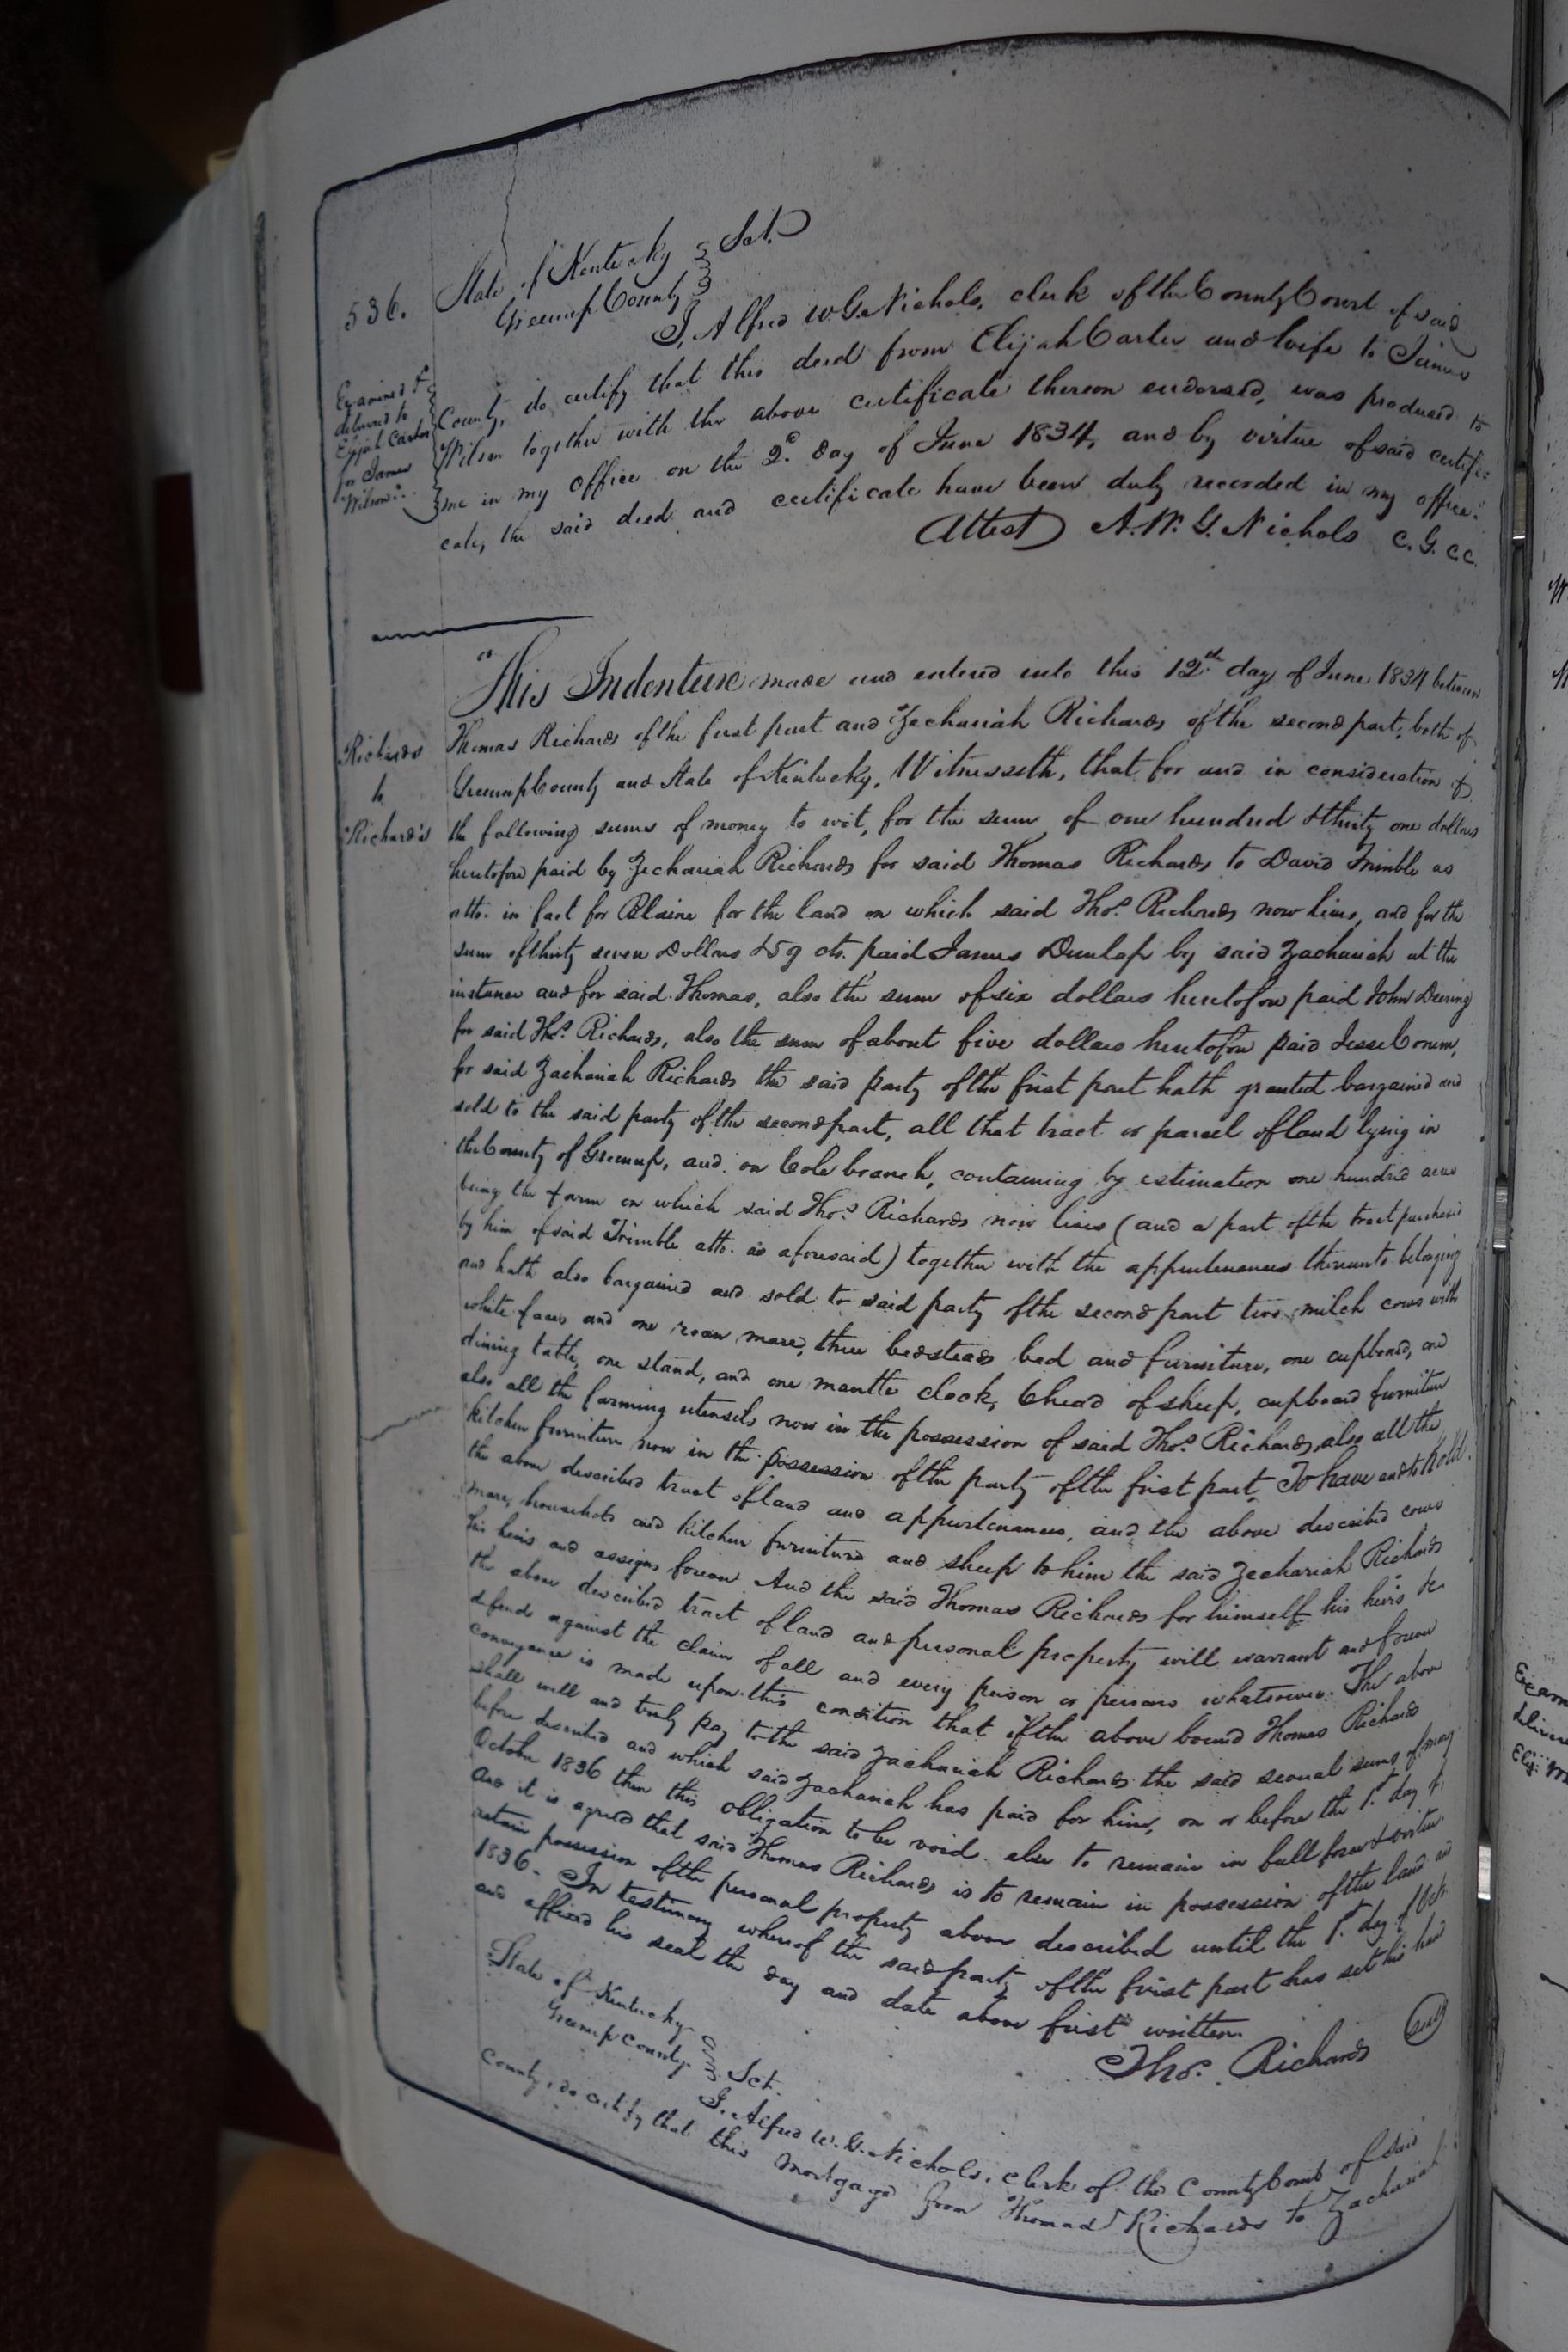 536.
State of Kentucky } Sct.
Greenup County }
I, Alfred W. G. Nichols, clerk of the County Court of said
County, do certify that this deed from Elijah Carter and wife to James
Wilson together with the above certificate thereon endorsed, was produced to
me in my office on the 2d. day of June 1834, and by virtue of said certifi-
cate, the said deed and certificate have been duly recorded in my office.
Attest A. W. G. Nichols C. G. C. C.
Examined &
delivered to
Elijah Carter
for James
Wilson
This Indenture made and entered into this 12th day of June 1834 between
Richards
to
Richards
Thomas Richards of the first part and Zechariah Richards of the second part, both of
Greenup County and State of Kentucky, Witnesseth, that for and in consideration of
the following sums of money to wit, for the sum of one hundred & thirty one dollars
heretofore paid by Zechariah Richards for said Thomas Richards to David Trimble as
atto. in fact for Blaine for the land on which said Thos. Richards now lives, and for the
sum of thirty seven Dollars & 59 cts. paid James Dunlap by said Zachariah at the
instance and for said Thomas, also the sum of six dollars heretofore paid John Deering
for said Thos. Richards, also the sum of about five dollars heretofore paid Jesse Corum,
for said Zachariah Richards the said party of the first part hath granted bargained and
sold to the said party of the second part, all that tract or parcel of land lying in
the County of Greenup, and on Cole branch, containing by estimation one hundred acres
being the farm on which said Thos. Richards now lives (and a part of the tract purchased
by him of said Trimble atto. as aforesaid) together with the appurtenances thereunto belonging
and hath also bargained and sold to said party of the second part two milch cows with
white faces and one roan mare, three bedsteads bed and furniture, one cupboard, one
dining table, one stand, and one mantle clock, 6 head of sheep, cupboard furniture
also all the farming utensils now in the possession of said Thos. Richards, also all the
kitchen furniture now in the possession of the party of the first part, To have and to hold
the above described tract of land and appurtenances, and the above described cows
mare, household and kitchen furniture and sheep to him the said Zechariah Richards
his heirs and assigns forever And the said Thomas Richards for himself his heirs &c
the above described tract of land and personal property will warrant and forever
defend against the claim of all and every person or persons whatsoever. The above
conveyance is made upon this condition that if the above bound Thomas Richards
shall well and truly pay to the said Zachariah Richards the said several sums of money
before described and which said Zachariah has paid for him, on or before the 1st. day of
October 1836 then this obligation to be void else to remain in full force & virtue
And it is agreed that said Thomas Richards is to remain in possession of the land and
retain possession of the personal property above described until the 1st. day of Octr.
1836- In testimony whereof the said party of the first part has set his hand
and affixed his seal the day and date above first written.
Thos. Richards (seal)
State of Kentucky } Sct.
Greenup County }
I, Alfred W. G. Nichols, clerk of the County Court of said
County, do certify that this mortgage from Thomas Richards to Zachariah